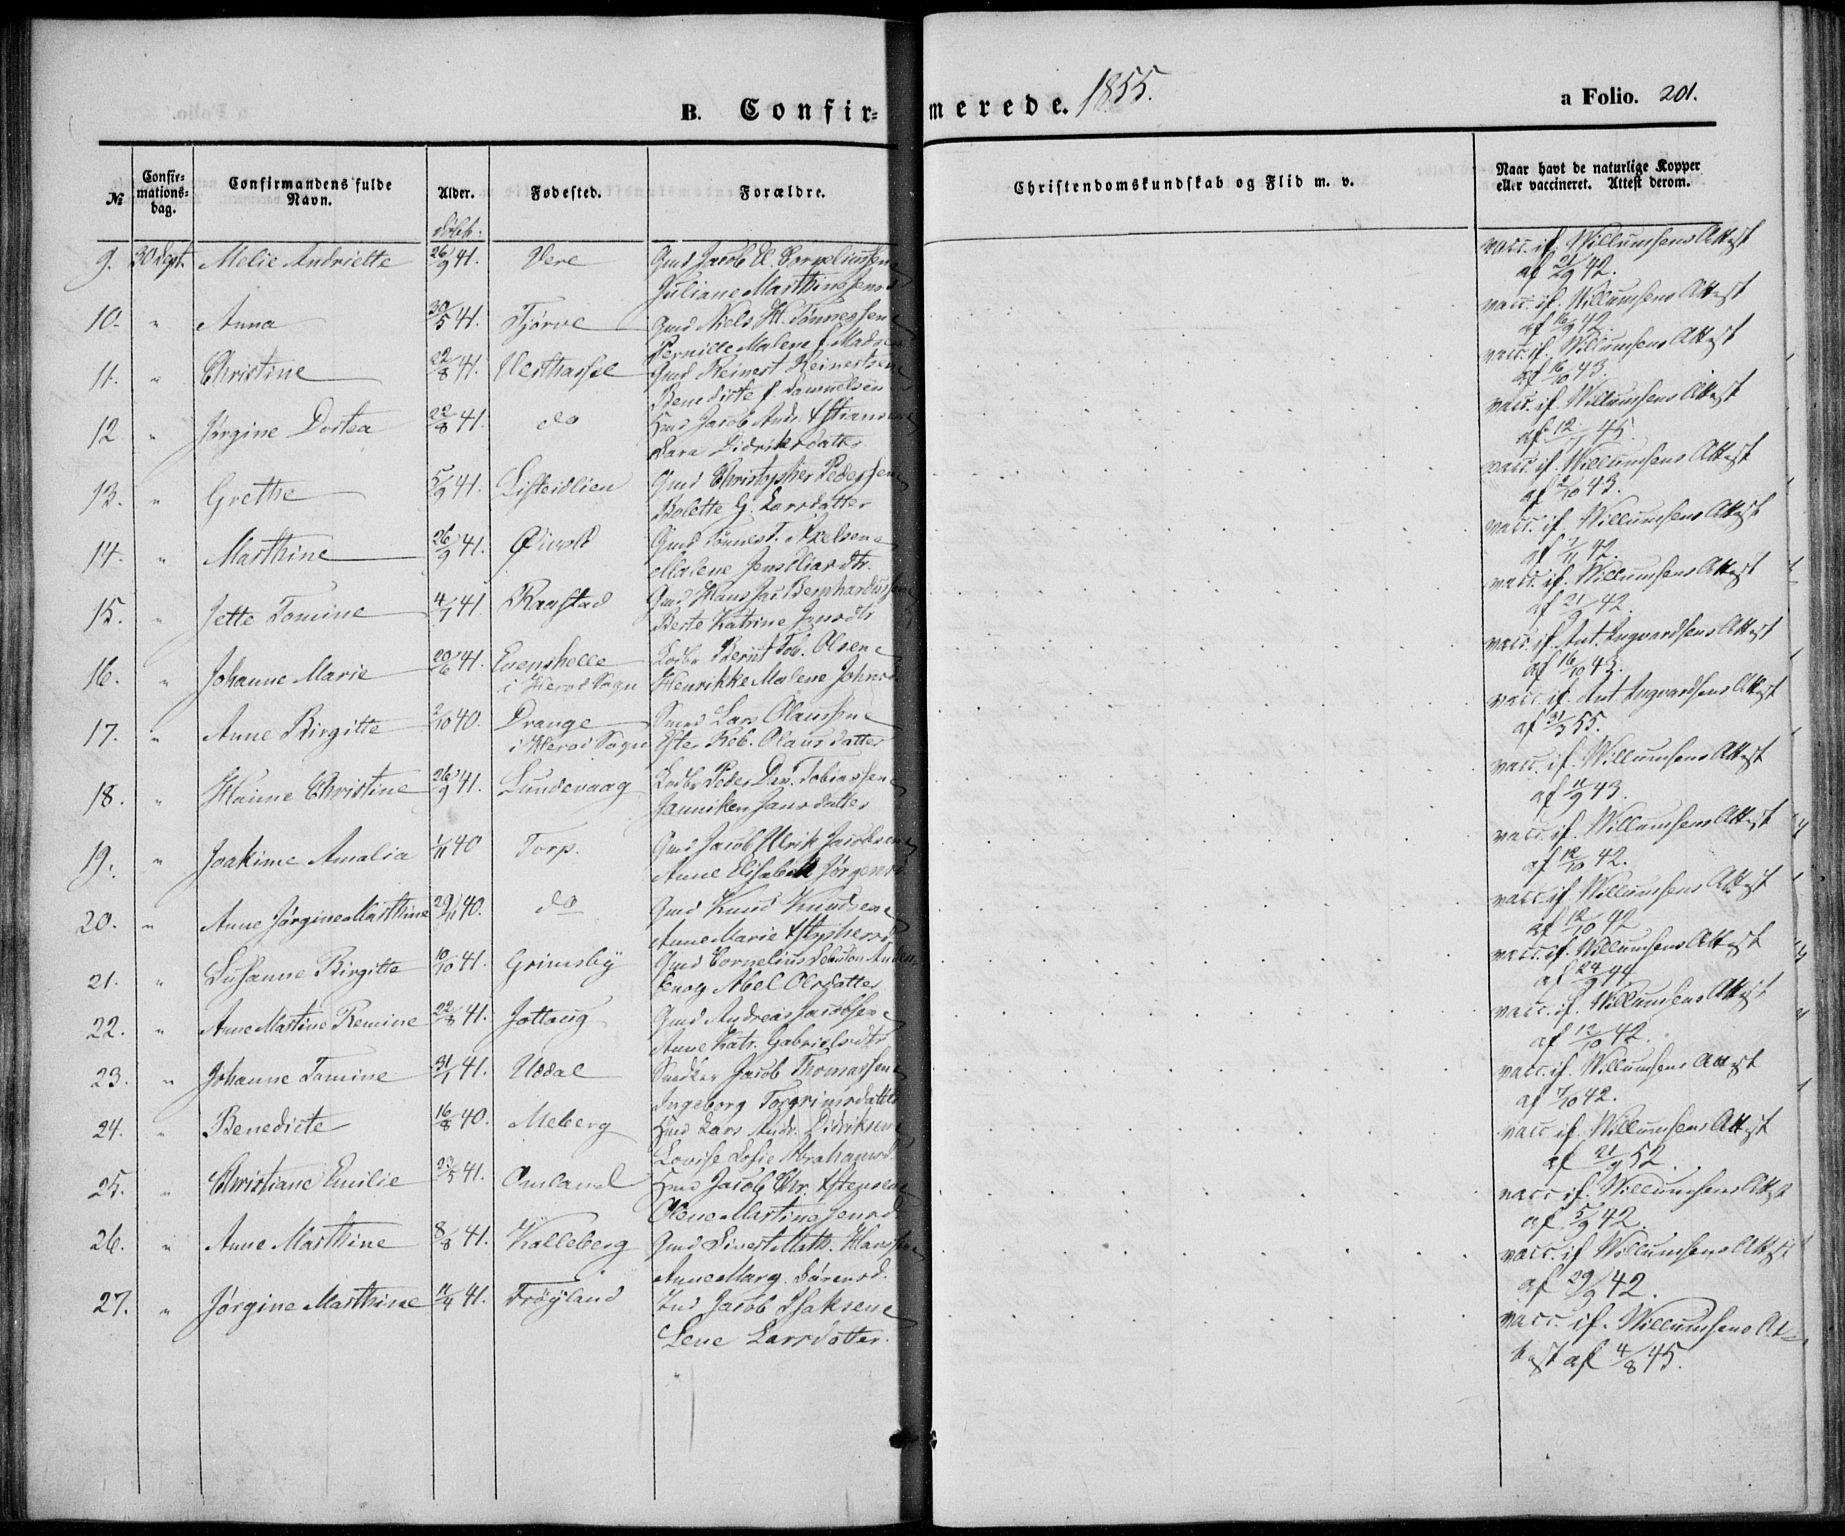 B. Confirmerede. 1855. a Folio. 201.
№ Confirmationsdag. Confirmandens fulde Navn. Alder. Fødested. Forældre. Christendomskundskab og Flid m. v. Naar havt de naturlige Kopper eller vaccineret. Attest derom.
døbt:
9. 30 Sept. Melie Andriette 26/9 41. Vere Gmd Jacob A. Corneliussen vacc. if. Willumsens Attest
Juliane Marthine Jensd af 21/9 42.
10. " Anna 30/5 41. Tjørve Gmd Niels H. Tønnessen vacc. if. Willumsens Attest
Pernille Malene f. Madsen af 16/9 42.
11. " Christine 22/8 41. Vesthassel Gmd Reinert Reinertsen vacc. if. Willumsens Attest
Benedicte f. Samuelsen af 16/10 43.
12. " Jørgine Dortea 22/8 41. do Hmd Jacob Andr. Xstiansen vacc. if. Willumsens Attest
Sara Didriksdatter af 12/ 45.
13. " Grethe 5/9 41. Listeidlien Gmd Christopher Pedersen vacc. if. Willumsens Attest
Bolette G. Larsdatter af 2/10 43.
14. " Marthine 26/9 41. Gmd Tønnes T. Axelsen vacc. if. Willumsens Attest
Malene Jens Eliasdtr. af 1/11 42.
15. " Jette Tomine 4/7 41. Raastad Gmd Hans Jac Bernhardussen vacc. if. Willumsens Attest
Berte Katrine Jensdtr af 21/9 42.
16. " Johanne Marie 20/6 41. Evenshelle Lods Bernt Tob. Olsen vacc. if. Ant. Ingvardsens Attest
i Herød Sogn Henrikke Malene Johnsd. af 16/10 43.
17. " Anne Birgitte 2/10 40. Drange Smed Lars Olaussen vacc. if. Ant Ingvardsens Attest
i Herød Sogn Ester Reb. Olausdatter af 31/3 55.
18. " Hanne Christine 26/9 41. Lundevaag Lods Peder Dav. Tobiassen vacc. if. Willumsens Attest
Janniken Jansdatter af 11/9 43.
19. " Joakime Amalia 1/11 40 Torp. Gmd Jacob Ulrik Jacobsen vacc. if. Willumsens Attest
Anne Elisabeth Jørgensd af 12/10 42.
20. " Anne Jørgine Marthine 29/11 40. do Gmd Knud Knudsen vacc. if. Willumsens Attest
Anne Marie Xstophersd af 12/10 42
21. " Susanne Birgitte 10/10 41. Grimsby Gmd Cornelius vacc. if. Willumsens Attest
Abel Olsdatter af 24/9 44.
22. " Anne Martine Remine 22/8 41. Jøllaug Gmd Andreas Jacobsen vacc. if. Willumsens Attest
Anne Katr. Gabrielsdtr af 12/10 42.
23. " Johanne Tomine 31/1 41. Uddal Snedker Jacob Thomassen vacc. if. Willumsens Attest
Ingeborg Torgrimsdatter af 7/10 42.
24. " Benedicte 16/8 40. Meberg Hmd Lars Andr. Didriksen vacc. if. Willumsens Attest
Lovise Sofie Abrahamsd. af 21/9 52.
25. " Christiane Emilie 23/5 41. Omland Hmd Jacob Chr. Xstensen vacc. if. Willumsens Attest
Olene Martine Jensd. af 5/9 42.
26. " Anne Marthine 8/8 41. Kalleberg Gmd Sivert Math. Hansen vacc. if. Willumsens Attest
Anne Marg. Sørensd. af 29/9 42.
27. " Jørgine Marthine 11/4 41. Frøyland Ind Jacob Isaksen vacc. if. Willumsens At-
Lene Larsdatter. test af 4/8 45.